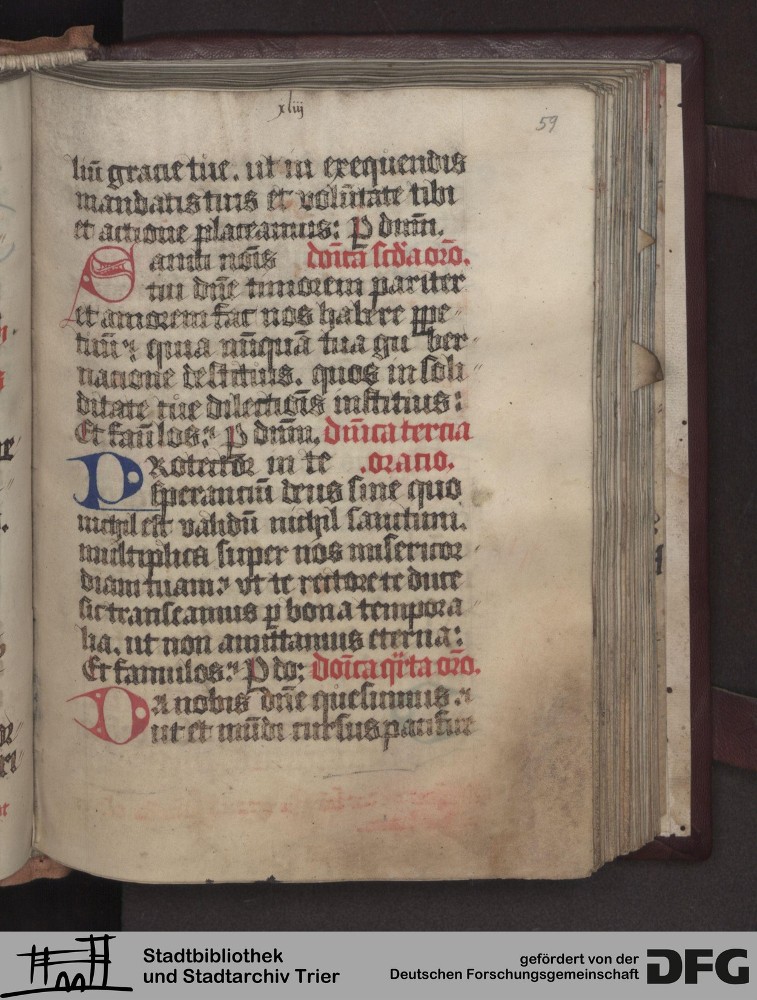 xliij
59
liū gracie tue. ut in exequendis
mandatis tuis et volūtate tibi
et actione placeamus: P dnm̄.
Sancti nōis dōica scd̄a orō.
tui dn̄e timorem pariter
et amorem fac nos habere ppe
tuū quia nūquā tua gu ber
nacione destituis. quos in soli
ditate tue dilectiōis instituis:
Et fam̄los: P dnm̄. dn̄ica tercia
PRotector in te .oracio.
sperantiū deus sine quo
nichil est validū nichil sanctum.
multiplica super nos misericor
diam tuam: vt te rectore te duce
sic transeamus p bona tempora
lia. ut non amittamus eterna:
Et famulos: P do: dōica qr̄ta orō.
DA nobis dn̄e quesumus.
ut et mūdi cursus pacifice
Stadtbibliothek
und Stadtarchiv Trier
gefördert von der
Deutschen Forschungsgemeinschaft
DFG